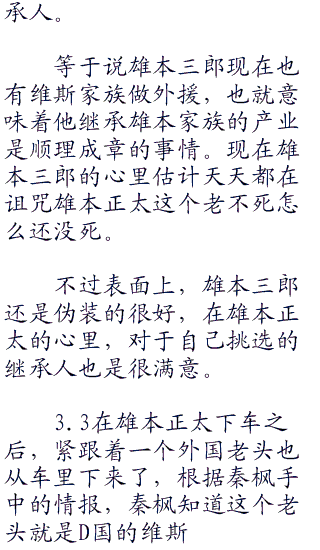 承人。
等于说雄本三郎现在也
有维斯家族做外援，也就意
味着他继承雄本家族的产业
是顺理成章的事情。现在雄
本三郎的心里估计天天都在
诅咒雄本正太这个老不死怎
么还没死。
不过表面上，雄本三郎
还是伪装的很好，在雄本正
太的心里，对于自己挑选的
继承人也是很满意。
3.3在雄本正太下车之
后，紧跟着一个外国老头也
从车里下来了，根据秦枫手
中的情报，秦枫知道这个老
头就是D国的维斯